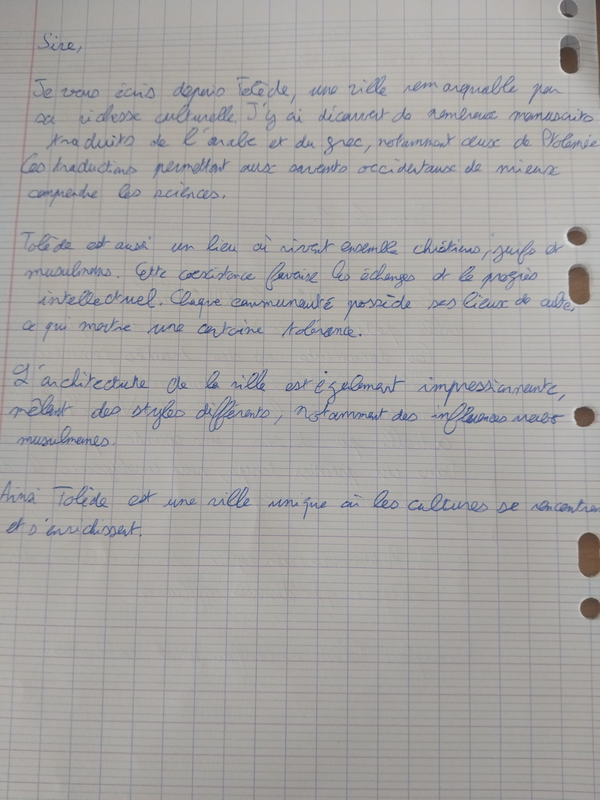 Sire,
Je vous écris depuis Tolède, une ville remarquable par
sa richesse culturelle. J'y ai découvert de nombreux manuscrits
traduits de l'arabe et du grec, notamment ceux de Ptolémée
Ces traductions permettent aux savants occidentaux de mieux
comprendre les sciences.
Tolède est aussi un lieu où vivent ensemble chrétiens, juifs et
musulmans. Cette coexistence favorise les échanges et le progrès
intellectuel. Chaque communauté possède ses lieux de culte,
ce qui montre une certaine tolérance.
L'architecture de la ville est également impressionnante,
mêlant des styles différents, notamment des influences
musulmanes.
Ainsi Tolède est une ville unique où les cultures se rencontrent
et s'enrichissent.